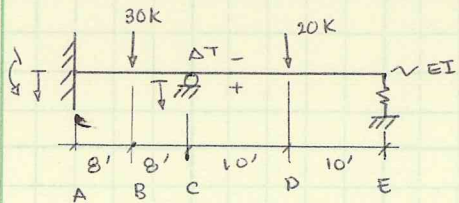 30K
20K
ΔT -
+
~ EI
8'
8'
10'
10'
A
B
C
D
E